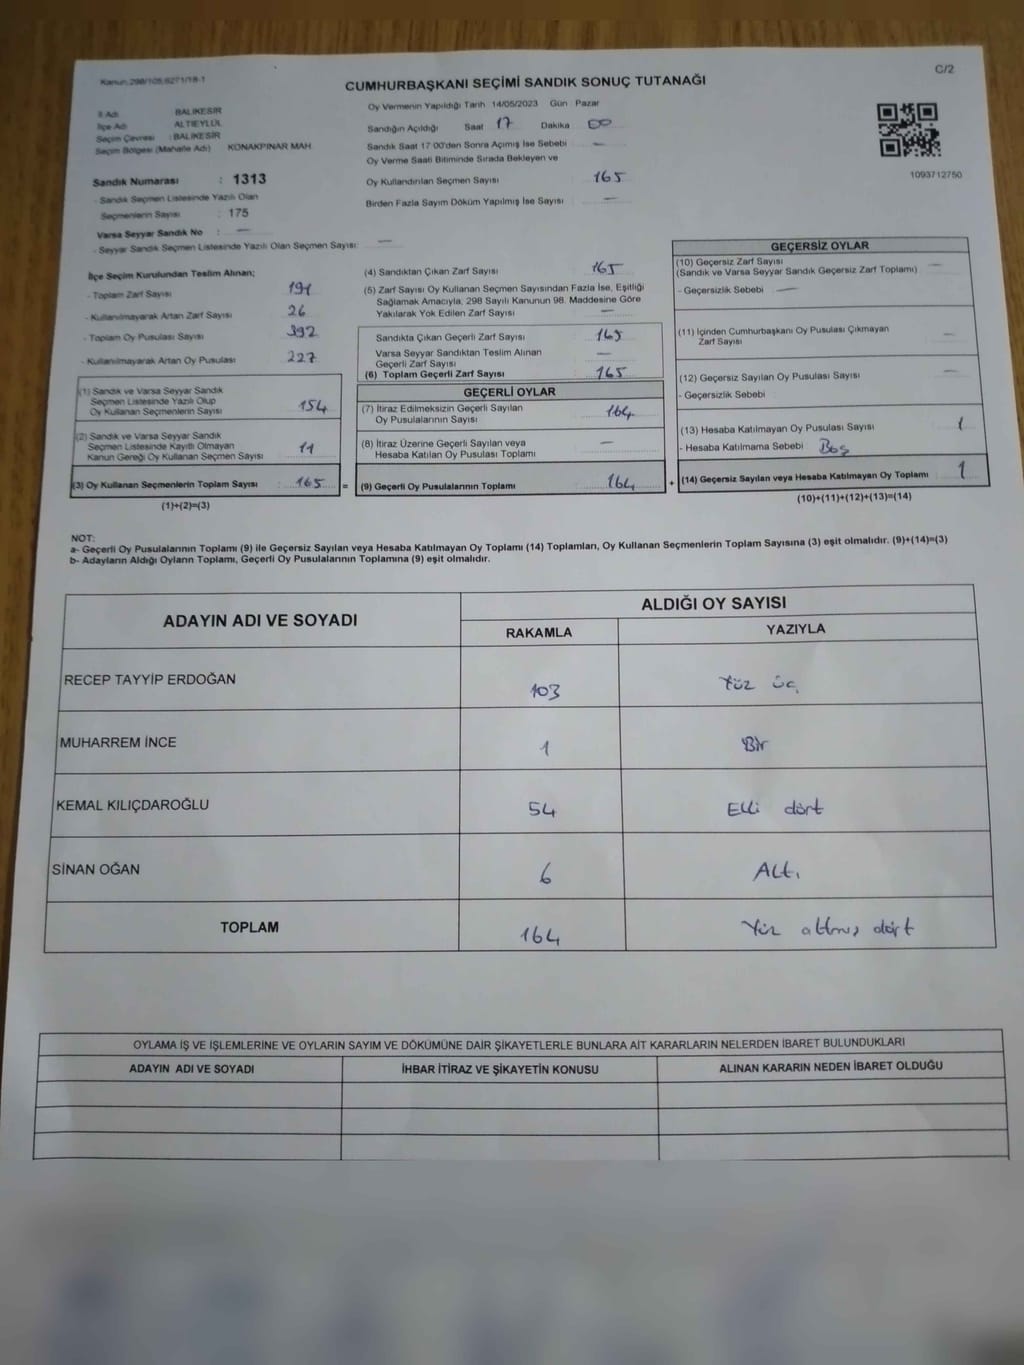 Kanun:298/105,6271/18-1
C/2
CUMHURBAŞKANI SEÇİMİ SANDIK SONUÇ TUTANAĞI
İl Adı : BALIKESİR
İlçe Adı : ALTIEYLÜL
Seçim Çevresi : BALIKESİR
Seçim Bölgesi (Mahalle Adı) KONAKPINAR MAH.
Sandık Numarası : 1313
- Sandık Seçmen Listesinde Yazılı Olan
Seçmenlerin Sayısı : 175
Varsa Seyyar Sandık No : —
- Seyyar Sandık Seçmen Listesinde Yazılı Olan Seçmen Sayısı: —
Oy Vermenin Yapıldığı Tarih 14/05/2023 Gün Pazar
Sandığın Açıldığı Saat 17 Dakika 00
Sandık Saat 17:00'den Sonra Açımış İse Sebebi —
Oy Verme Saati Bitiminde Sırada Bekleyen ve
Oy Kullandırılan Seçmen Sayısı 165
Birden Fazla Sayım Döküm Yapılmış İse Sayısı —
1093712750
İlçe Seçim Kurulundan Teslim Alınan;
- Toplam Zarf Sayısı 191
- Kullanılmayarak Artan Zarf Sayısı 26
- Toplam Oy Pusulası Sayısı 392
- Kullanılmayarak Artan Oy Pusulası 227
(1) Sandık ve Varsa Seyyar Sandık
Seçmen Listesinde Yazılı Olup
Oy Kullanan Seçmenlerin Sayısı 154
(2) Sandık ve Varsa Seyyar Sandık
Seçmen Listesinde Kayıtlı Olmayan
Kanun Gereği Oy Kullanan Seçmen Sayısı 11
(3) Oy Kullanan Seçmenlerin Toplam Sayısı 165 =
(1)+(2)=(3)
(4) Sandıktan Çıkan Zarf Sayısı 165
(5) Zarf Sayısı Oy Kullanan Seçmen Sayısından Fazla İse, Eşitliği
Sağlamak Amacıyla, 298 Sayılı Kanunun 98. Maddesine Göre
Yakılarak Yok Edilen Zarf Sayısı —
Sandıkta Çıkan Geçerli Zarf Sayısı 165
Varsa Seyyar Sandıktan Teslim Alınan
Geçerli Zarf Sayısı —
(6) Toplam Geçerli Zarf Sayısı 165
GEÇERLİ OYLAR
(7) İtiraz Edilmeksizin Geçerli Sayılan
Oy Pusulalarının Sayısı 164
(8) İtiraz Üzerine Geçerli Sayılan veya
Hesaba Katılan Oy Pusulası Toplamı —
(9) Geçerli Oy Pusulalarının Toplamı 164 +
GEÇERSİZ OYLAR
(10) Geçersiz Zarf Sayısı —
(Sandık ve Varsa Seyyar Sandık Geçersiz Zarf Toplamı)
- Geçersizlik Sebebi —
(11) İçinden Cumhurbaşkanı Oy Pusulası Çıkmayan
Zarf Sayısı —
(12) Geçersiz Sayılan Oy Pusulası Sayısı —
- Geçersizlik Sebebi
(13) Hesaba Katılmayan Oy Pusulası Sayısı 1
- Hesaba Katılmama Sebebi Boş
(14) Geçersiz Sayılan veya Hesaba Katılmayan Oy Toplamı 1
(10)+(11)+(12)+(13)=(14)
NOT:
a- Geçerli Oy Pusulalarının Toplamı (9) ile Geçersiz Sayılan veya Hesaba Katılmayan Oy Toplamı (14) Toplamları, Oy Kullanan Seçmenlerin Toplam Sayısına (3) eşit olmalıdır. (9)+(14)=(3)
b- Adayların Aldığı Oyların Toplamı, Geçerli Oy Pusulalarının Toplamına (9) eşit olmalıdır.
ADAYIN ADI VE SOYADI ALDIĞI OY SAYISI
RAKAMLA YAZIYLA
RECEP TAYYİP ERDOĞAN 103 Yüz üç
MUHARREM İNCE 1 Bir
KEMAL KILIÇDAROĞLU 54 Elli dört
SİNAN OĞAN 6 Altı
TOPLAM 164 Yüz altmış dört
OYLAMA İŞ VE İŞLEMLERİNE VE OYLARIN SAYIM VE DÖKÜMÜNE DAİR ŞİKAYETLERLE BUNLARA AİT KARARLARIN NELERDEN İBARET BULUNDUKLARI
ADAYIN ADI VE SOYADI İHBAR İTİRAZ VE ŞİKAYETİN KONUSU ALINAN KARARIN NEDEN İBARET OLDUĞU